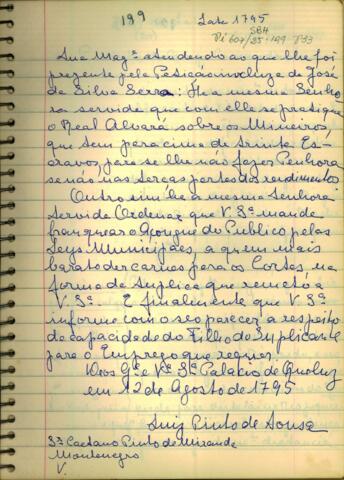 199 Late 1795
SBH
Pi 607/85.199 P33
Sua Magᵉ atendendo ao que lhe foi
prezente pela Petição incluza de José
da Silva Serra: He a mesma Senho
ra servida que com elle se pratique
o Real Alvará sobre os Mineiros
que tem pera cima de trinta Es-
cravos, para se lhe não fazer Penhora
senão nas terças partes dos rendimentos
Outro sim he a mesma Senhora
Servida Ordenar que V Sª mande
franquear o Açougue do Publico pelas
Leys Municipaes, a quem mais
barato der carnes para os Cortes, na
forma da Suplica que remeto a
V Sª. E finalmente que V Sª
informe com o seo parecer a respeito
da capacidade do Filho do Suplicante
para o Emprego que requer.
Deos Gᵉ a Vª Sª Palacio de Queluz
em 12 de Agosto de 1795
Luiz Pinto de Sousa
Sʳ Caetano Pinto de Miranda
Montenegro
V.